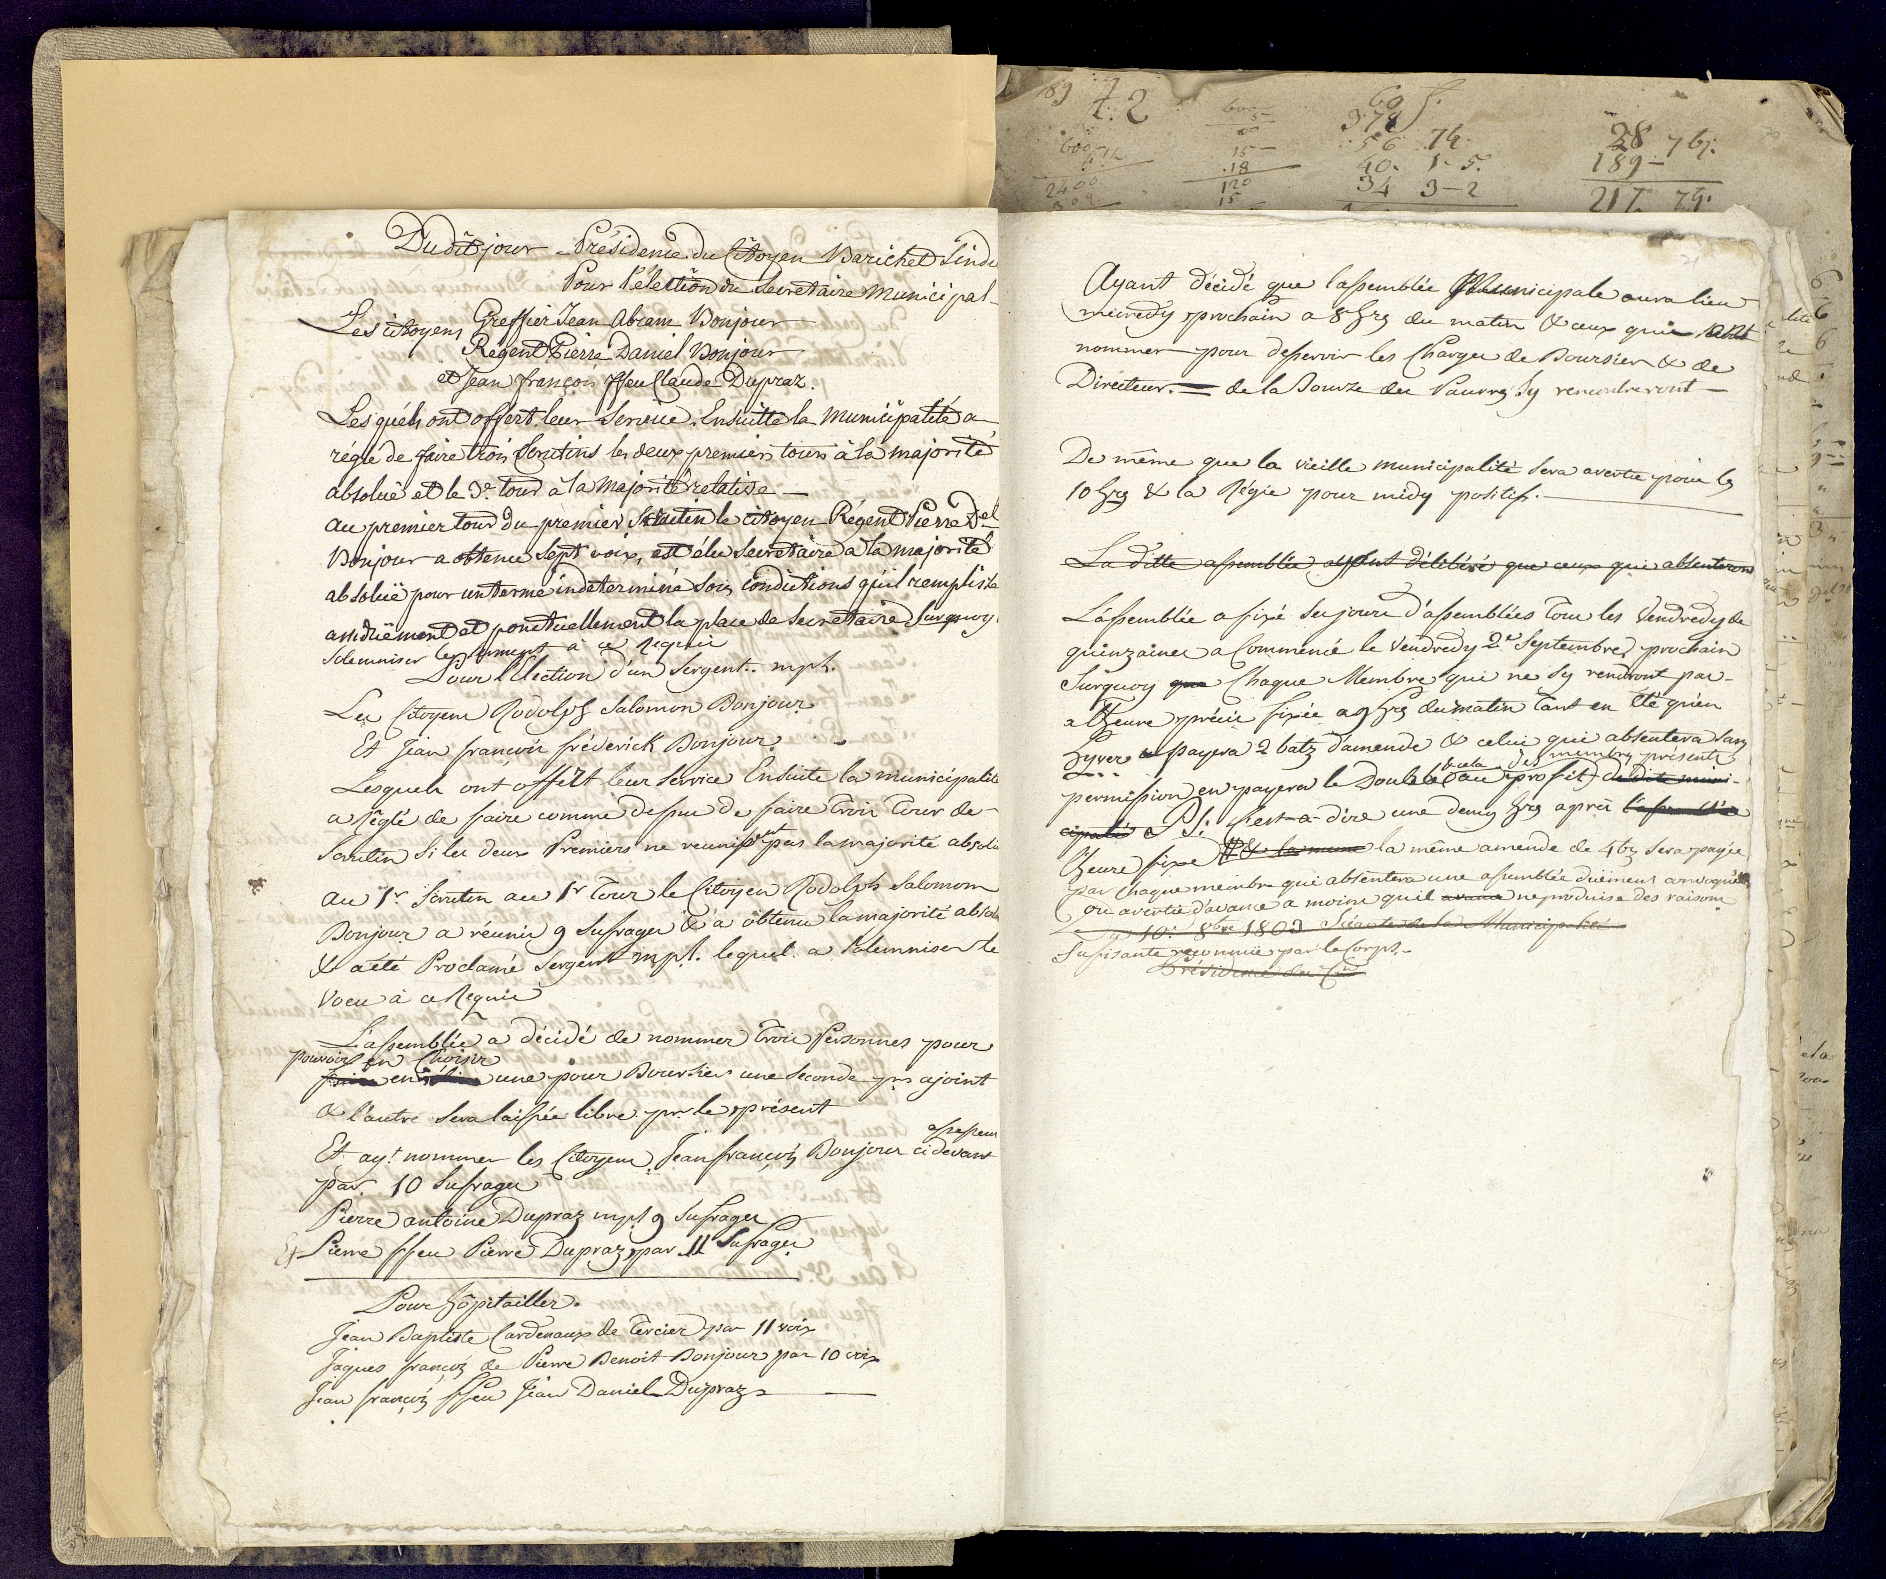 189 7
7: 2
600
5
60 f.
378
56 7½.
40. 1-5.
34 3-2
28 7½.
189-
217. 7½.
600
2400
15-
.18
120
15
Du dit jour - Présidence du Citoyen Barichet Sindi
Pour l'éléction du Secretaire Municipal-
Les citoyens Greffier Jean Abram Bonjour
Régent Pierre Daniel Bonjour
et Jean françois ffeu Claude Dupraz.
Lesquéls ont offert leur Service. Ensuitte la Municipalité a
réglé de faire trois Scrutins les deux premiers tours à la majorité
absoluë et le 3e. tour à la Majorité relative —
au premier tour du premier Scrutin le citoyen Régent Pierre Del
Bonjour a obtenu Sept voix, est élu Secretaire à la majorité
absoluë pour un terme indeterminé Sous condictions qu'il remplisse
assiduëment et ponctuellement la place de Secretaire Surquoy
Solemniser le serment à ce Requis
Pour l'Election d'un Sergent.. mpl.
Les Citoyens Rodolph Salomon Bonjour
Et Jean françois fréderick Bonjour.
Lesquels ont offert leur Service Ensuite la municipalité
a réglé de faire comme dessus de faire trois Tour de
Scrutin Si les deux Premiers ne reunissent pas la majorité absolue
au 1r. Scrutin au 1r Tour le Citoyen Rodolph Salomon
Bonjour a réunir 9 Sufrages & a obtenu la majorité absolue
& a été Proclamé Sergent mpl. lequel a Solemniser le
voeu à ce Requis
L'assemblée a décidé de nommer trois Personnes pour
pouvoir en Choisir
faire en une pour Boursier une Seconde pr ajoint
& l'autre Sera laissée libre pr. le présent
assesseur
Et ayt. nommer les Citoyens Jean françois Bonjour cidevant
par. 10 Sufrages
Pierre antoine Dupraz mpl 9 Sufrages
Et Pierre ffeu Pierre Dupraz par 11 Sufrages
Pour hôpitailler.
Jean Baptiste Cardenaux de Tercier par 11 voix
Jaques françois de Pierre Benoit Bonjour par 10 voix
Jean françois ffeu Jean Daniel Dupraz —
Ayant décidé que l'assemblée Municipale aura lieu
mecredy prochain a 8 hrs du matin & ceux qui sont
nommer pour desservir les Charges de Boursier & de
Directeur. — de la Bourse des Pauvres Sy rencontreront —
De même que la vieille municipalité Sera avertie pour les
10 hrs & la Régie pour midy positif. —
La ditte assemblée ayant délibéré que ceux qui absenteront
L'assemblée a fixé Ses jours d'assemblées tous les Vendredy de
quinzaines a Commencé le Vendredy 2e Septembre prochain
Surquoy que Chaque Membre qui ne Sy rendront pas
a l'heure précise fixée a 9 hrs du matin tant en Eté qu'en
hyver payera 2 batz damende & celui qui absentera Sans
& cela des membres présents
permission en payera le Double au profit de dite muni-
cipalité PS: c'est-a-dire une demy hrs apres
l'heure fixe & la meme la même amende de 4 bz Sera payée
par Chaque membre qui absentera une assemblée duëment convoquée
ou avertie d'avance a moins qu'il avance ne produise des raisons
10e. 8bre 1803 Séante de la Municipalité
Sufisante reconnue par le Corps.-
Présidence du Cn